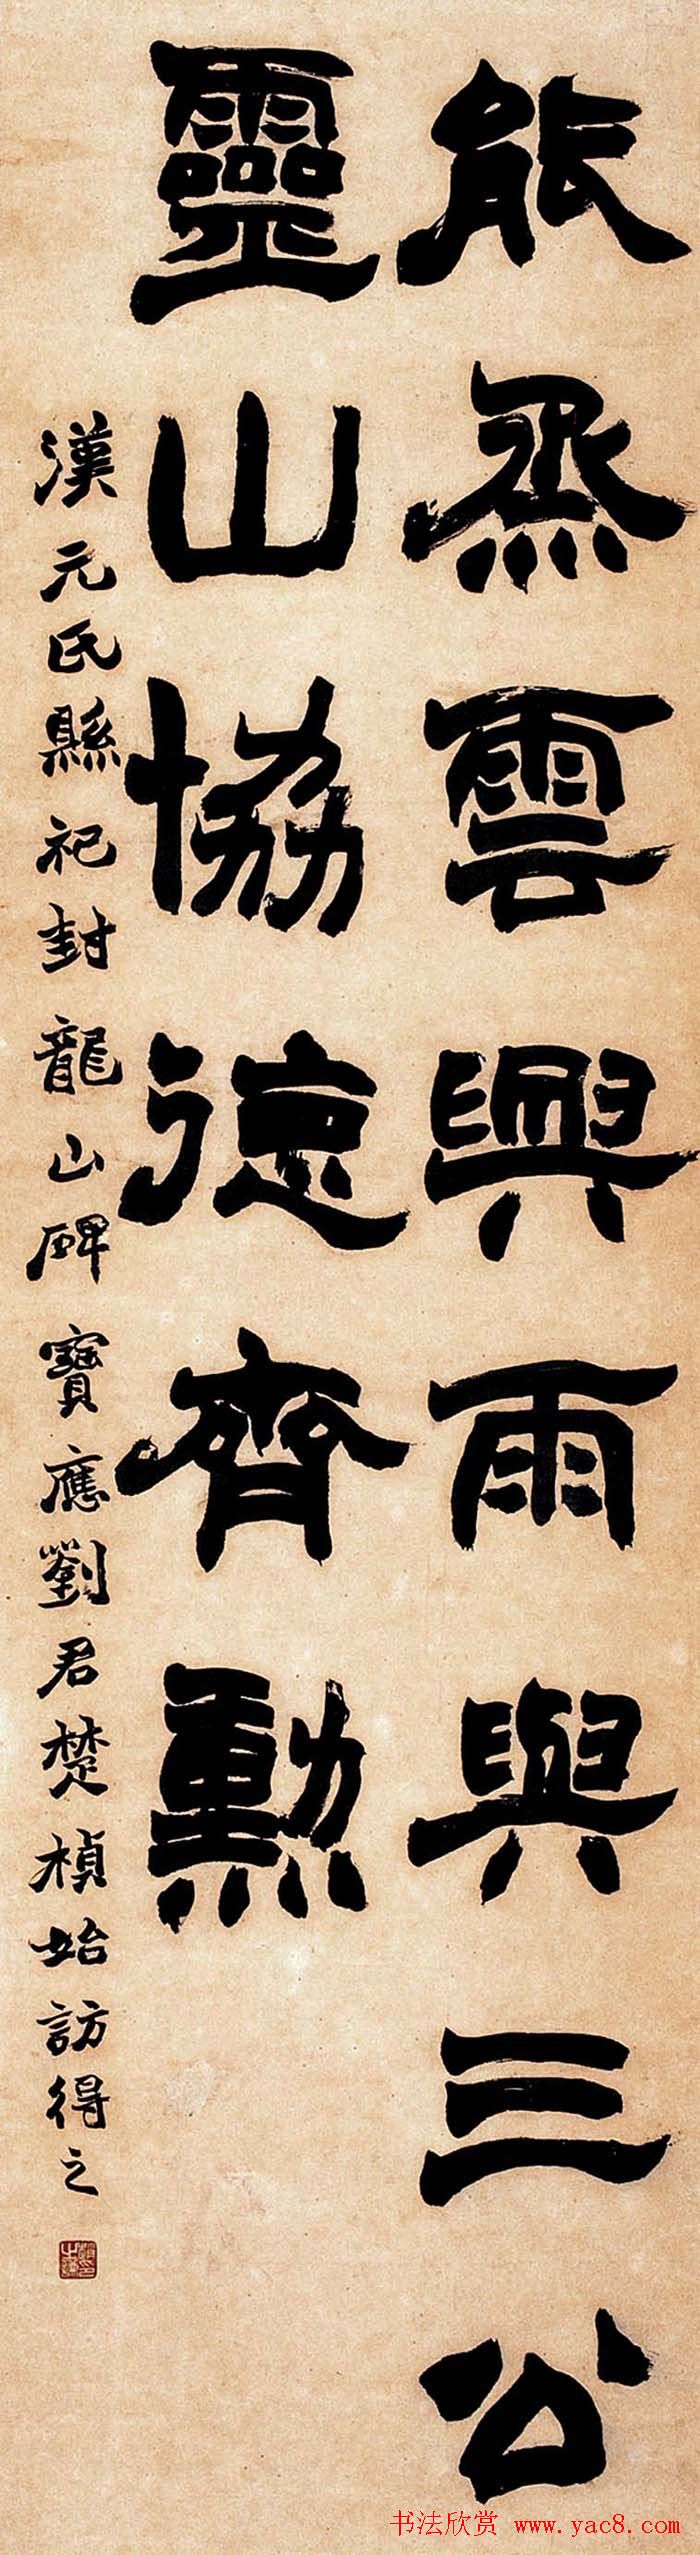 能烝雲興雨與三公
靈山協德齊勲
漢元氏縣祀封龍山碑寶應劉君楚楨始訪得之
书法欣赏 www.yac8.com